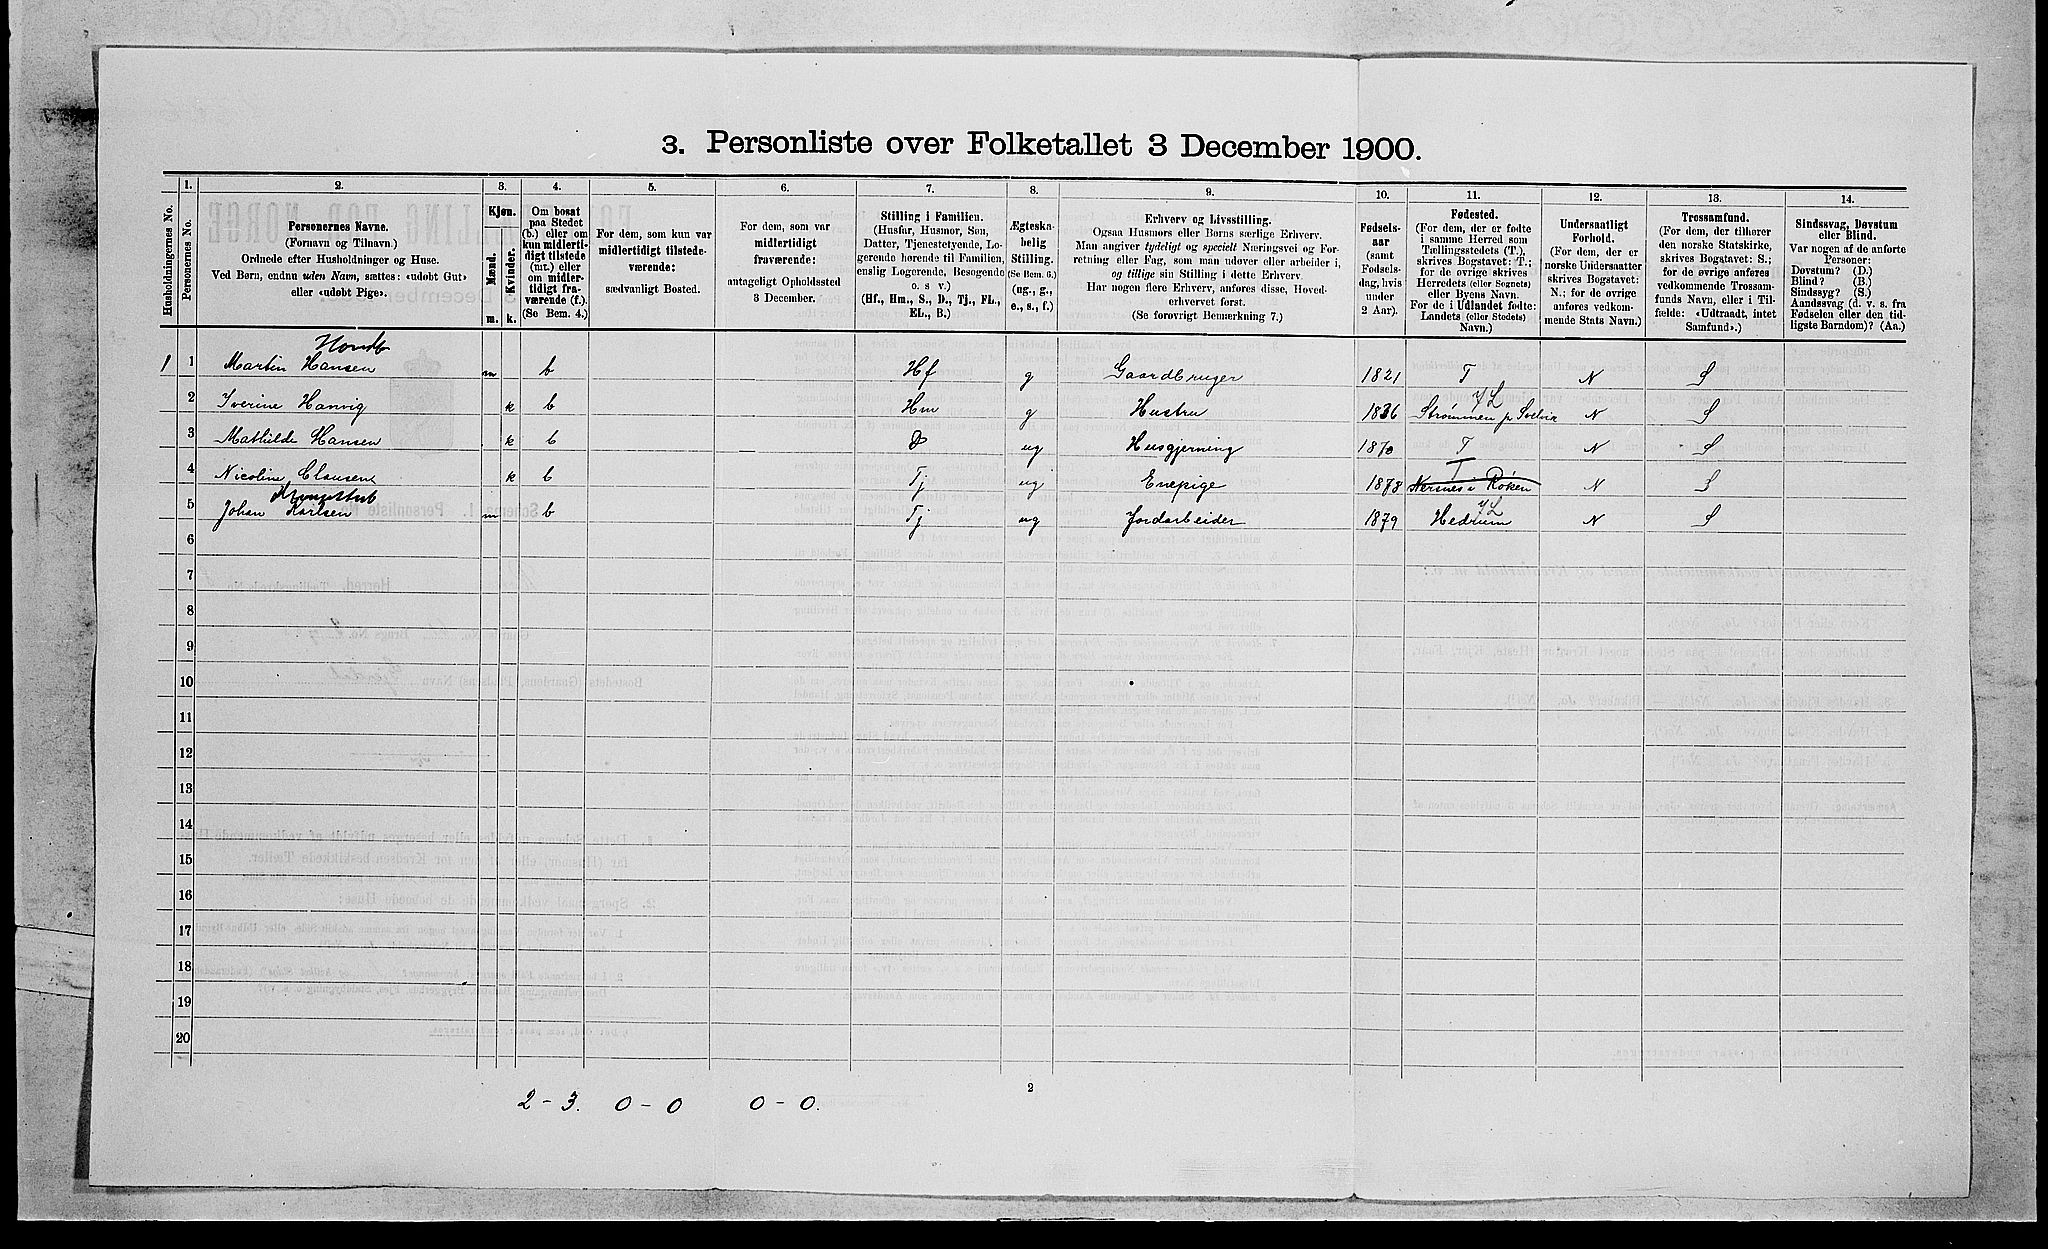 3. Personliste over Folketallet 3 December 1900.
Husholdningernes No.
1. Personernes No.
2. Personernes Navne. (Fornavn og Tilnavn.) Ordnede efter Husholdninger og Huse. Ved Børn, endnu uden Navn, sættes: «udøbt Gut» eller «udøbt Pige».
3. Kjøn. Mænd. m. Kvinder. k.
4. Om bosat paa Stedet (b.) eller om kun midlertidigt tilstede (mt.) eller om midlertidigt fraværende (f.) (Se Bem. 4.)
5. For dem, som kun var midlertidigt tilstedeværende: sædvanligt Bosted.
6. For dem, som var midlertidigt fraværende: antageligt Opholdssted 3 December.
7. Stilling i Familien. (Husfar, Husmor, Søn, Datter, Tjenestetyende, Logerende hørende til Familien, enslig Logerende, Besøgende o. s. v.) (Hf., Hm., S., D., Tj., FL., EL., B.)
8. Ægteskabelig Stilling. (Se Bem. 6.) (ug., g., e., s., f.)
9. Erhverv og Livsstilling. Ogsaa Husmors eller Børns særlige Erhverv. Man angiver tydeligt og specielt Næringsvei og Forretning eller Fag, som man udøver eller arbeider i, og tillige sin Stilling i dette Erhverv. Har nogen flere Erhverv, anføres disse, Hovederhvervet først. (Se forøvrigt Bemærkning 7.)
10. Fødselsaar (samt Fødselsdag, hvis under 2 Aar).
11. Fødested. (For dem, der er fødte i samme Herred som Tællingsstedets (T.), skrives Bogstavet: T.; for de øvrige skrives Herredets (eller Sognets) eller Byens Navn. For de i Udlandet fødte: Landets (eller Stedets) Navn.)
12. Undersaatligt Forhold. (For dem, der er norske Undersaatter skrives Bogstavet: N.; for de øvrige anføres vedkommende Stats Navn.)
13. Trossamfund. (For dem, der tilhører den norske Statskirke, skrives Bogstavet: S.; for de øvrige anføres vedkommende Trossamfunds Navn, eller i Tilfælde: «Udtraadt, intet Samfund».)
14. Sindssvag, Døvstum eller Blind. Var nogen af de anførte Personer: Døvstum? (D.) Blind? (B.) Sindssyg? (S.) Aandssvag (d. v. s. fra Fødselen eller den tidligste Barndom)? (Aa.)
1 1 Martin Hansen m b Hf g Gaardbruger 1821 T N S
2 Iverine Hanvig k b Hm g Hustru 1836 Strømmen p Svelvik JL N S
3 Mathilde Hansen k b D ug Husgjerning 1870 T N S
4 Nicoline Clausen k b Tj ug Enepige 1878 T Nersnes i Røken N S
5 Johan Karlsen m b Tj ug Jordarbeider 1879 Hedrum JL N S
6
7
8
9
10
11
12
13
14
15
16
17
18
19
20
2
2 - 3. 0 - 0 0 - 0.